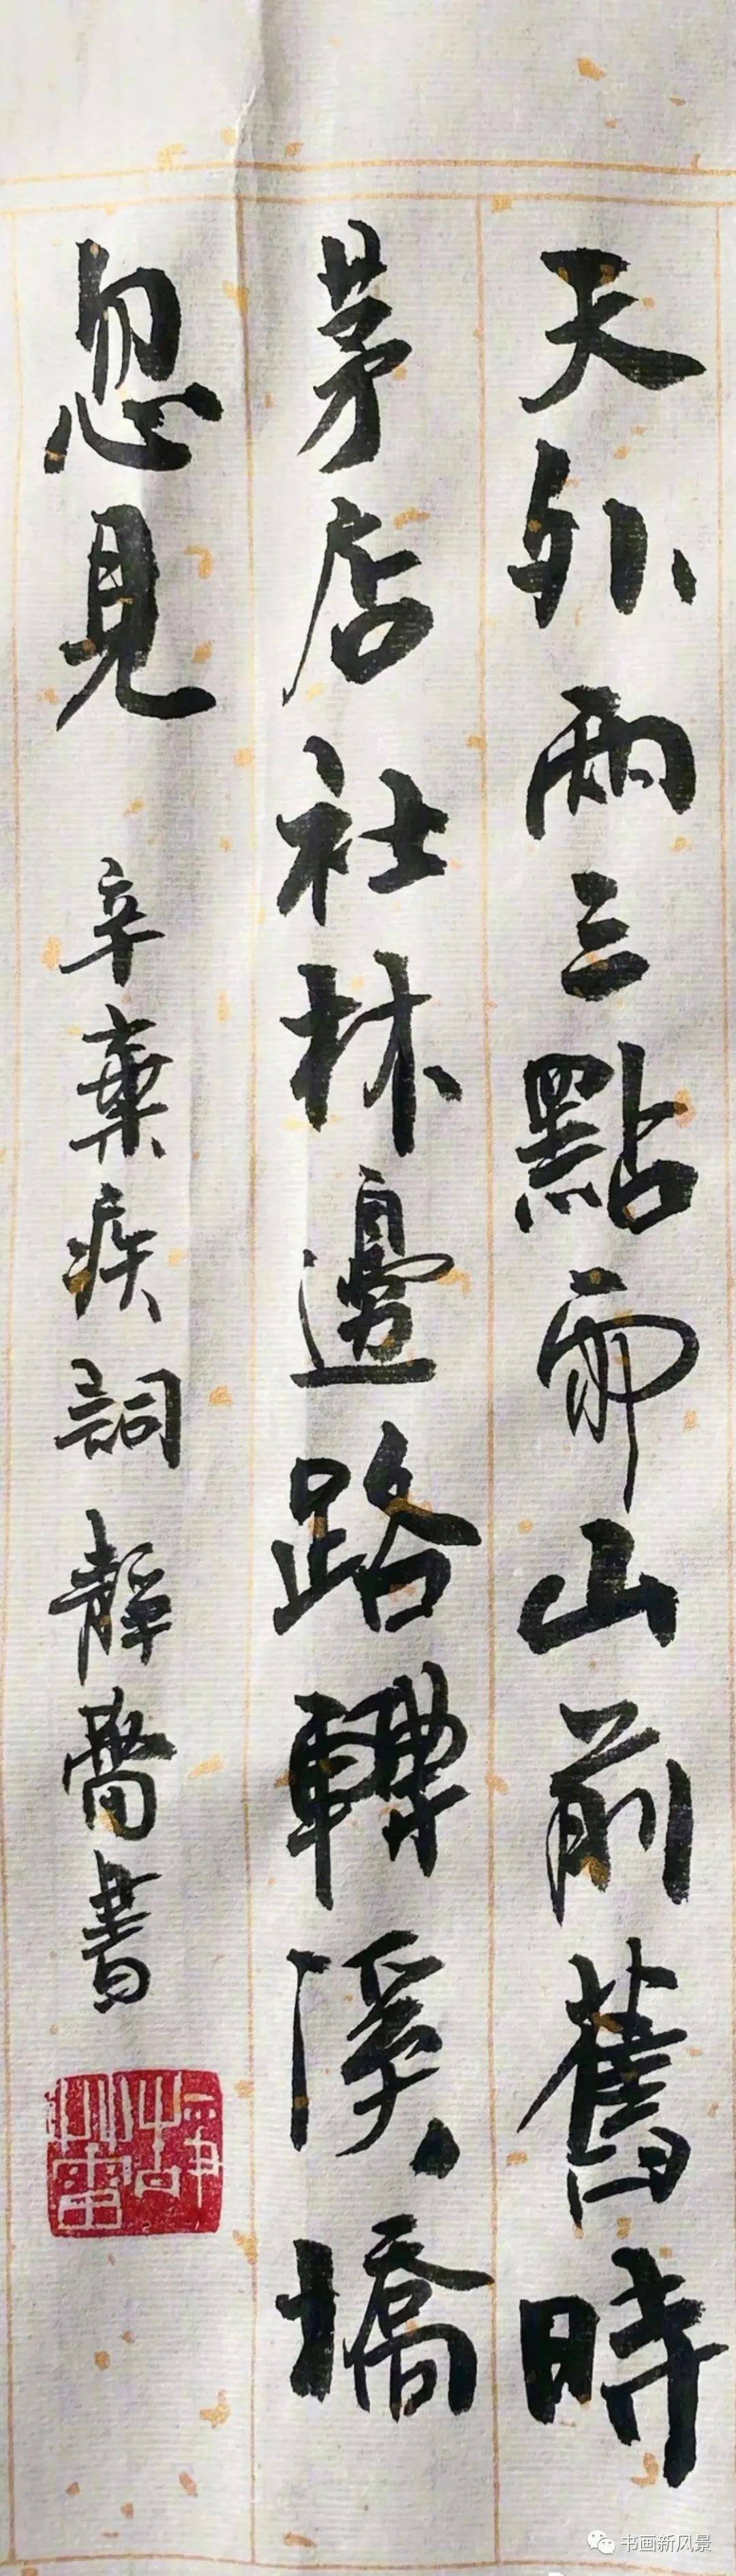 天外兩三點雨山前舊時
茅店社林邊路轉溪橋
忽見
辛棄疾詞靜蕾書
靜蕾
书画新风景